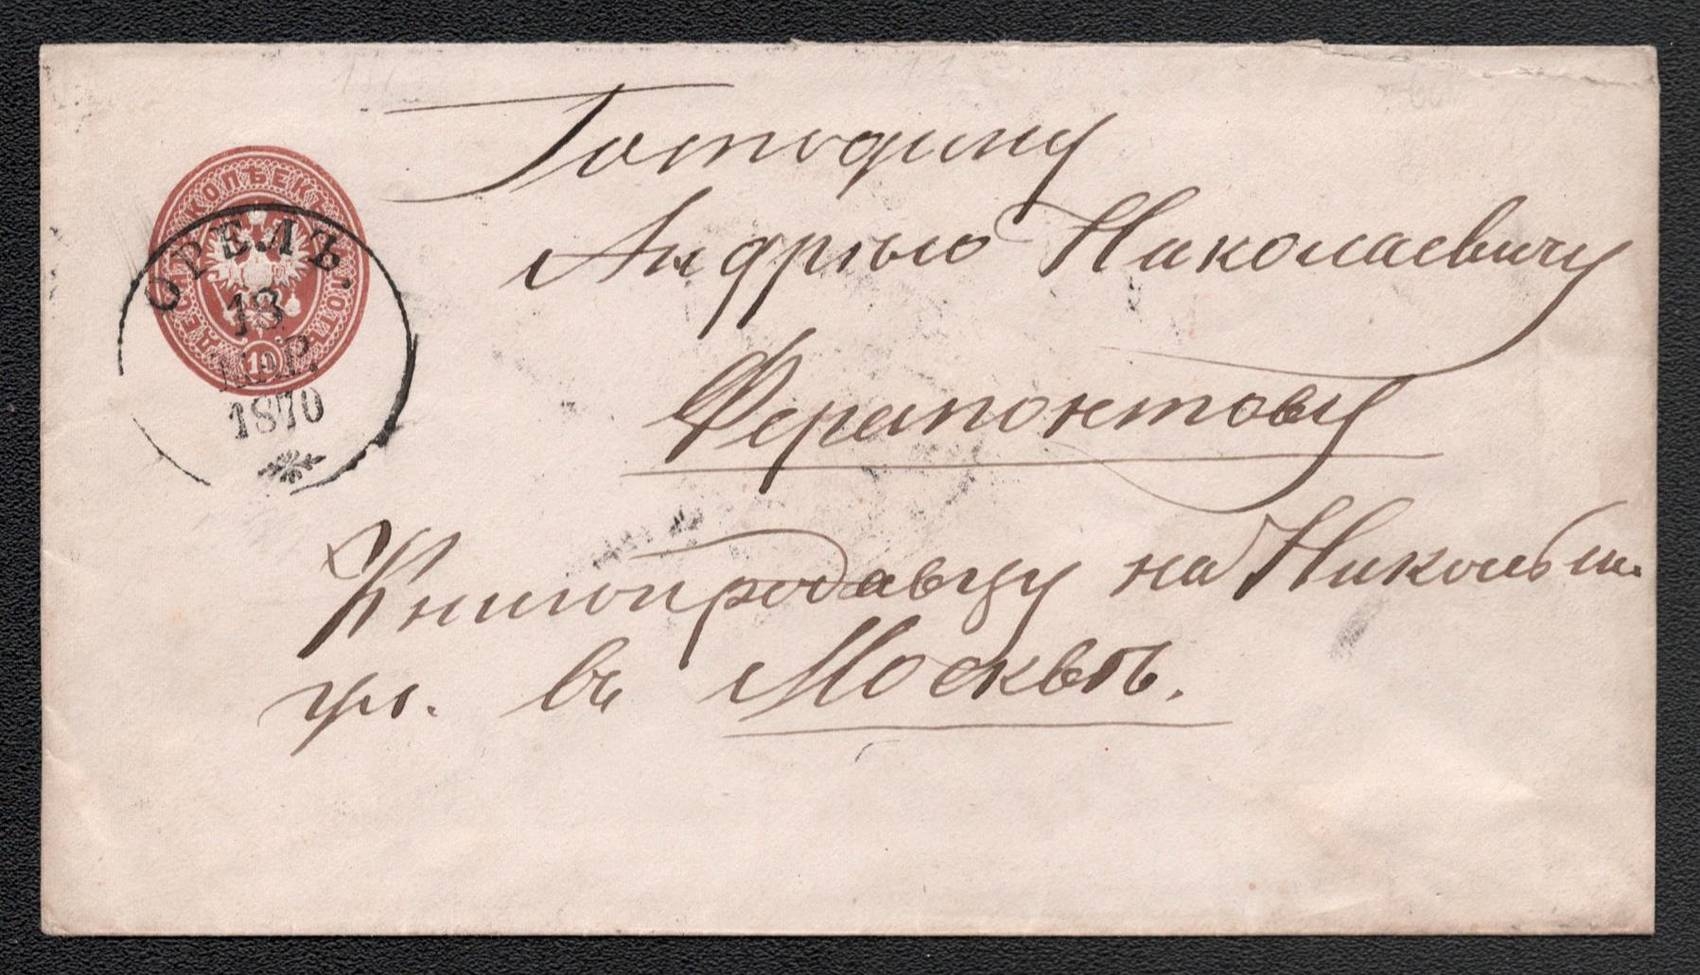 КОПѢЕКЪ
10
ОРЕЛЪ.
13
МАР.
1870
Господину
Андрею Николаевичу
Ферапонтову
Книгопродавцу на Никольск.
ул. въ Москвѣ.